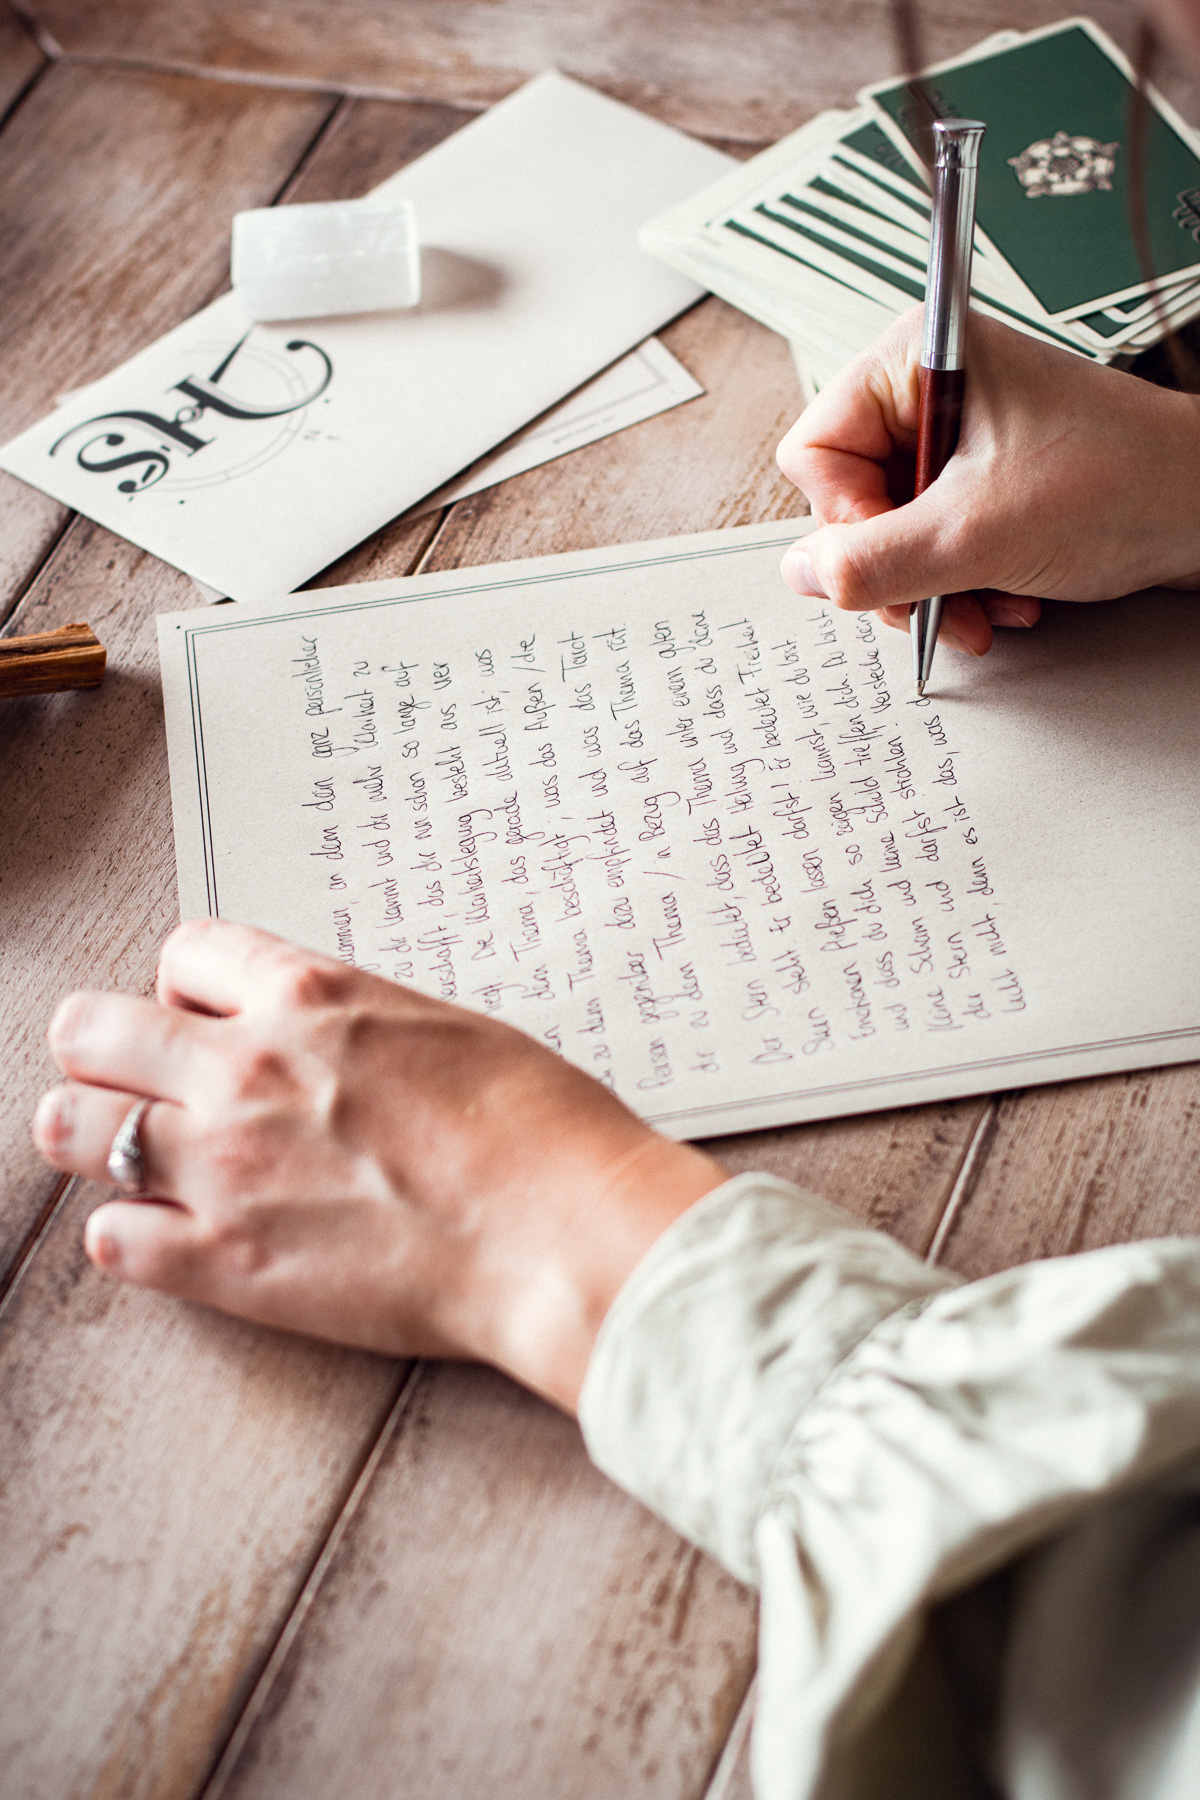 SH
N
kommen, an dem dein ganz persönlicher
zu dir kommt und dir mehr Klarheit zu
verschafft, das dir nun schon so lange auf
liegt. Die Klarheitslegung besteht aus vier
dein Thema, das gerade aktuell ist, was
zu dem Thema beschäftigt, was das Außen / die
Person gegenüber dazu empfindet und was das Tarot
dir zu dem Thema / in Bezug auf das Thema rät.
Der Stern bedeutet, dass das Thema unter einem guten
Stern steht. Er bedeutet Heilung und dass du deine
Emotionen fließen lassen darfst! Er bedeutet Freiheit
und dass du dich so zeigen kannst, wie du bist.
Keine Scham und keine Schuld treffen dich. Du bist
der Stern und darfst strahlen! Verstecke dein
Licht nicht, denn es ist das, was